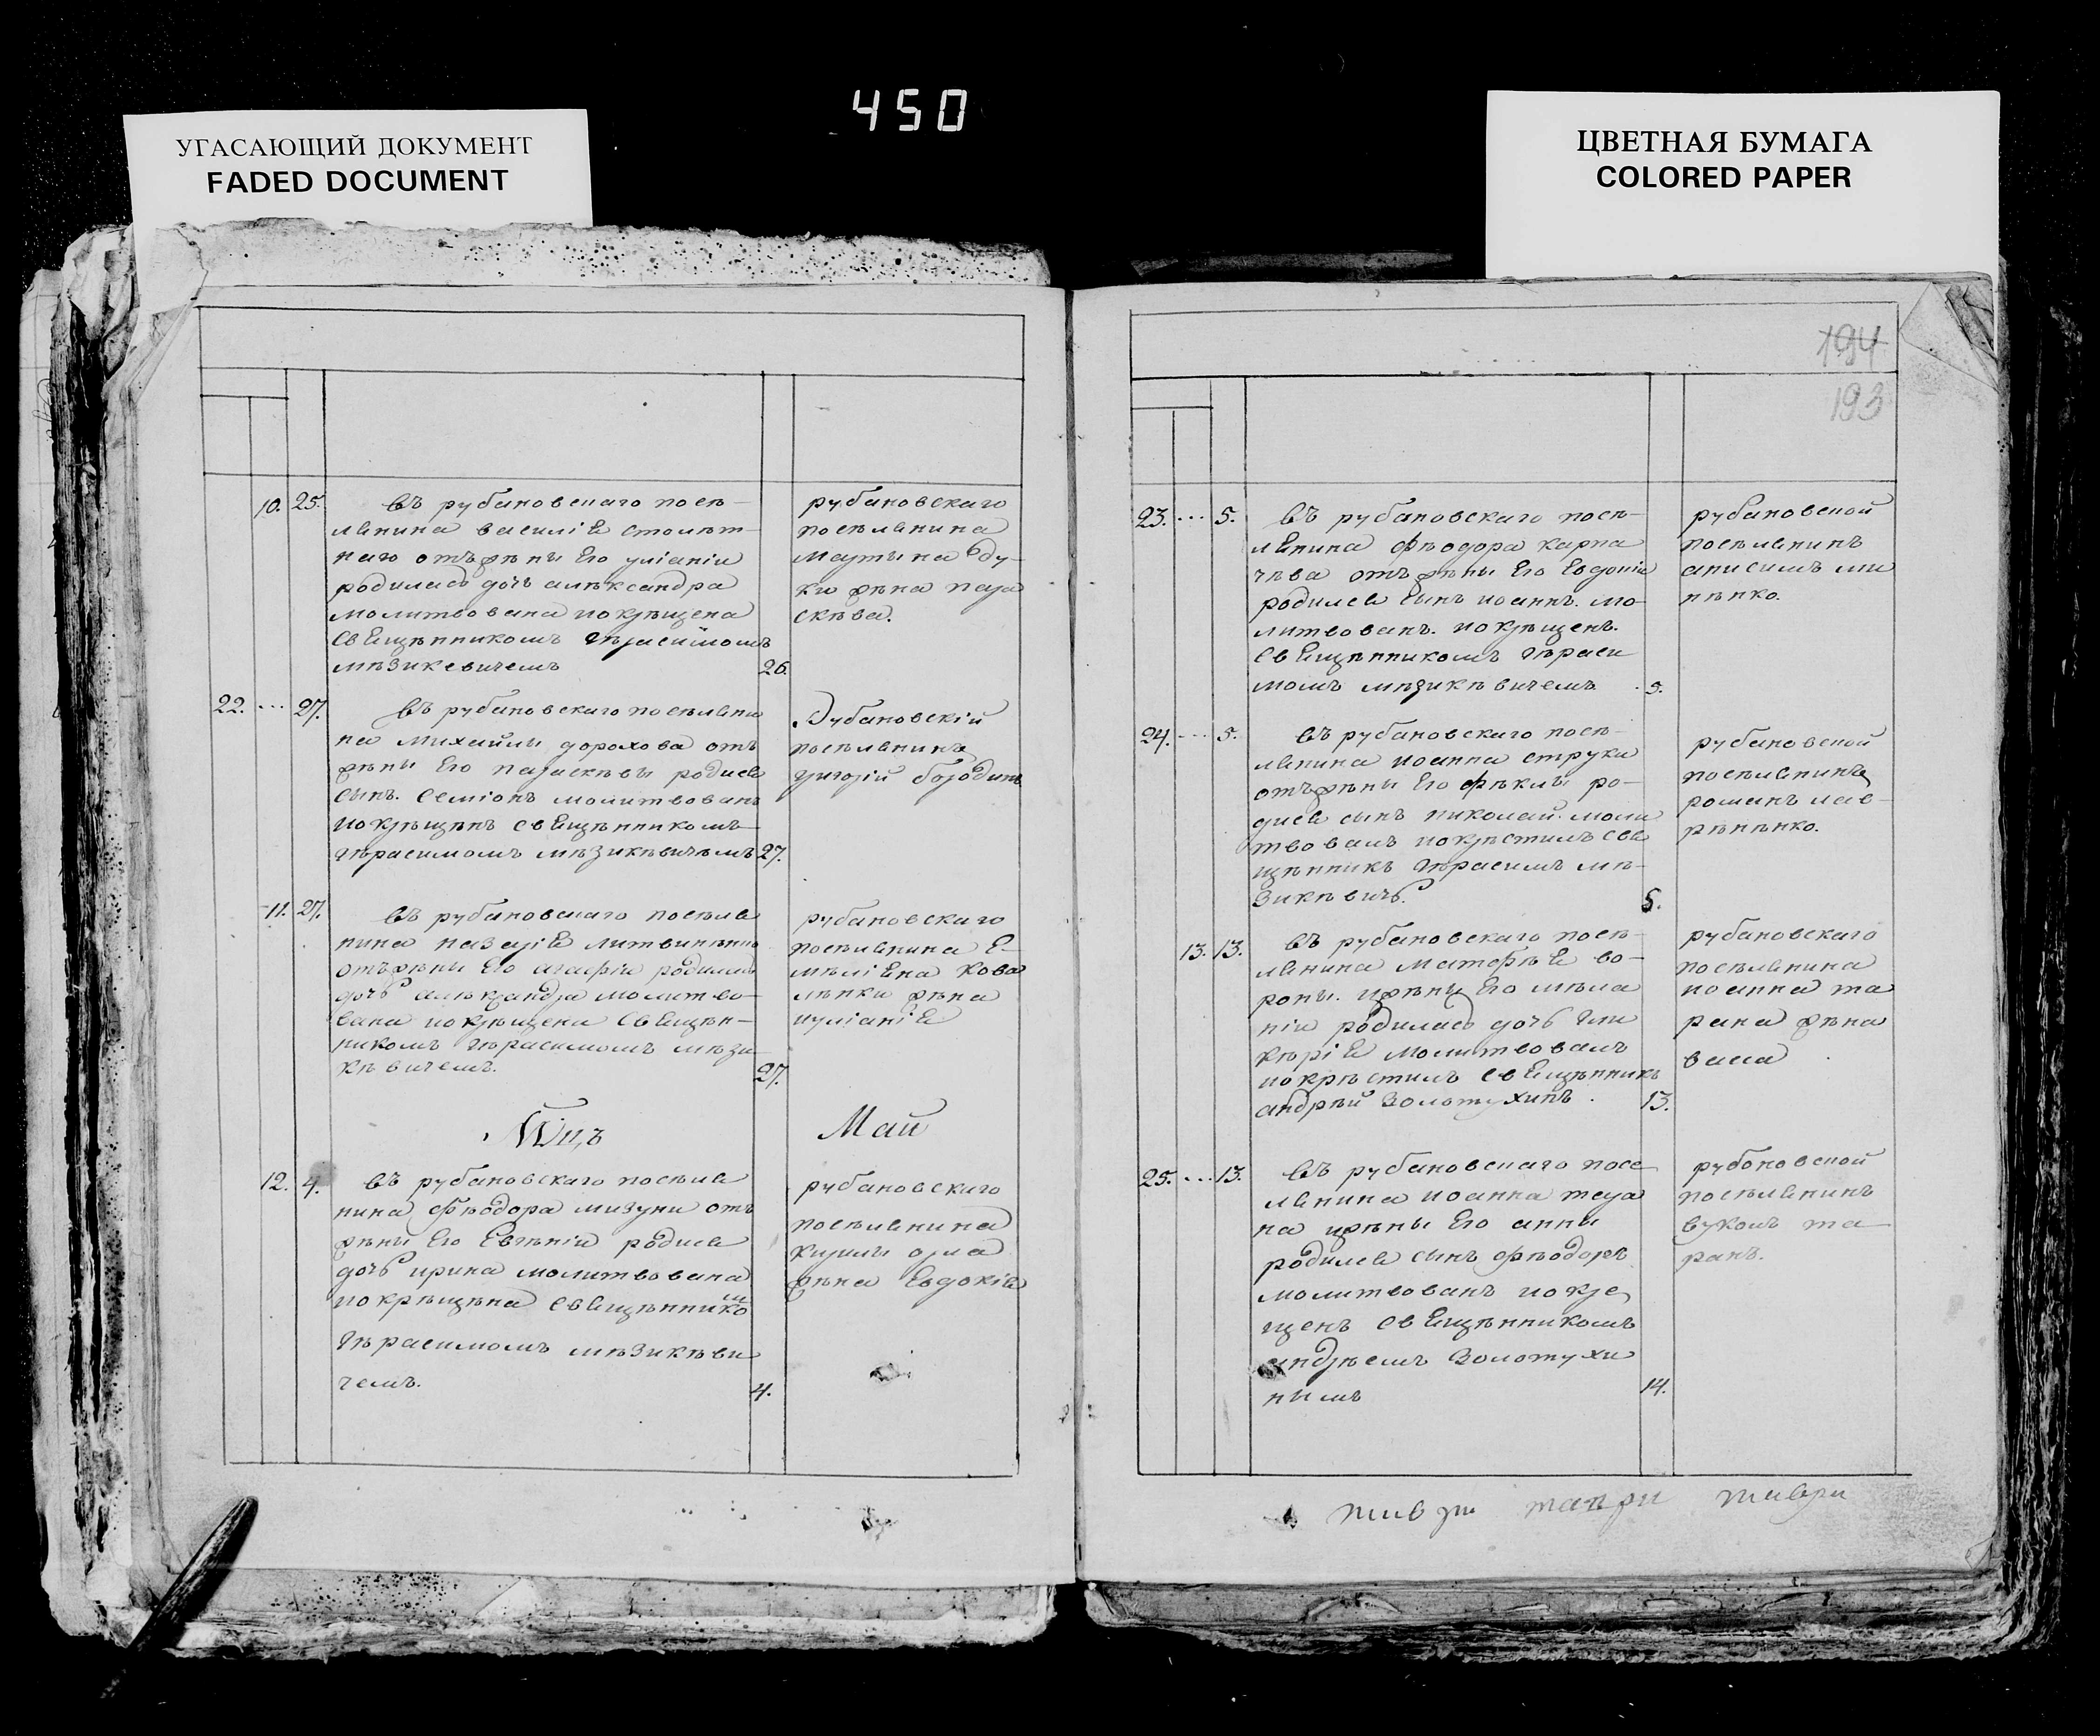 450
УГАСАЮЩИЙ ДОКУМЕНТ
FADED DOCUMENT
ЦВЕТНАЯ БУМАГА
COLORED PAPER
10. 25. въ рубановскаго посѣ-
лянина василія столѣт-
наго отъ жѣны Его уліаніи
родилась дочь алѣксандра
молитвована покрѣщена
свЕщѣнникомъ гѣрасимомъ
мѣзикевичемъ 26.
рубановскаго
посѣлянина
мартына
жѣна пара
скѣва.
22. ... 27. въ рубановскаго посѣляни
на михайлы дорохова отъ
жѣны Его параскѣвы родися
сынъ. Семіонъ молитвованъ
покрѣщѣнъ свЕщѣнникомъ
гѣрасимомъ мѣзикѣвичѣмъ 27.
Рубановскій
посѣлянинъ
григорій бородинъ
11. 27. въ рубановскаго посѣля
нина назарія литвинѣнко
отъ жѣны Его агафіи родилась
дочь молитво-
вана покрѣщена свЕщѣн-
никомъ гѣрасимомъ мѣзи
кѣвичемъ. 27.
рубановскаго
посѣлянина Е-
мѣліЕна кова
лѣнки жѣна
иуліаніЕ
Мцъ Май
12. 4. въ рубановскаго посѣля
нина фѣодора мизуни отъ
жѣны Его Евгѣніи родися
дочь ирина молитвована
покрѣщѣна свЕщѣнникомъ
гѣрасимомъ мѣзикѣви
чемъ. 4.
рубановскаго
посѣлянина
кирилы орла
жѣна Евдокія
194
193
23. ... 5. въ рубановскаго посѣ-
лЕнина фѣодора карпа
чѣва отъ жѣны Его Евдокіи
родился сынъ иоаннъ. мо-
литвованъ. покрѣщенъ.
свЕщѣнникомъ гѣраси
момъ мѣзикѣвичемъ. 5.
рубановской
посѣлянинъ
анисимъ ми
нѣнко.
24. ... 5. въ рубановскаго посѣ-
лянина иоанна струка
отъ жѣны Его фѣклы ро-
дися сынъ николай. моли
твовалъ покрѣстилъ свЕ
щѣнникъ гѣрасимъ мѣ-
зикѣвичь. 5.
рубановской
посѣлянинъ
романъ лав-
рѣнѣнко.
13. 13. въ рубановскаго посѣ-
лянина матфѣЕ во-
роны. ижѣны Его мѣла
ніи родилась дочь гли
кѣріЕ молитвовалъ
покрѣстилъ свЕщѣнникъ
андрѣй золотухинъ. 13.
рубановскаго
посѣлянина
иоанна та
рана жѣна
васса
25. ... 13. въ рубановскаго посе
лянина иоанна тера
на ижѣны Его анны
родился сынъ фѣодоръ
молитвованъ покре
щенъ свЕщѣнникомъ
андрѣемъ золотухи
нымъ 14.
рубоновской
посѣлянинъ
вуколъ та
ранъ.